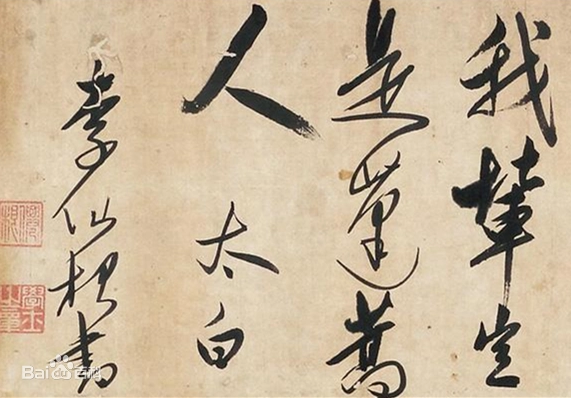 我輩豈
是蓬蒿
人 太白
李仙根書
Bai百科